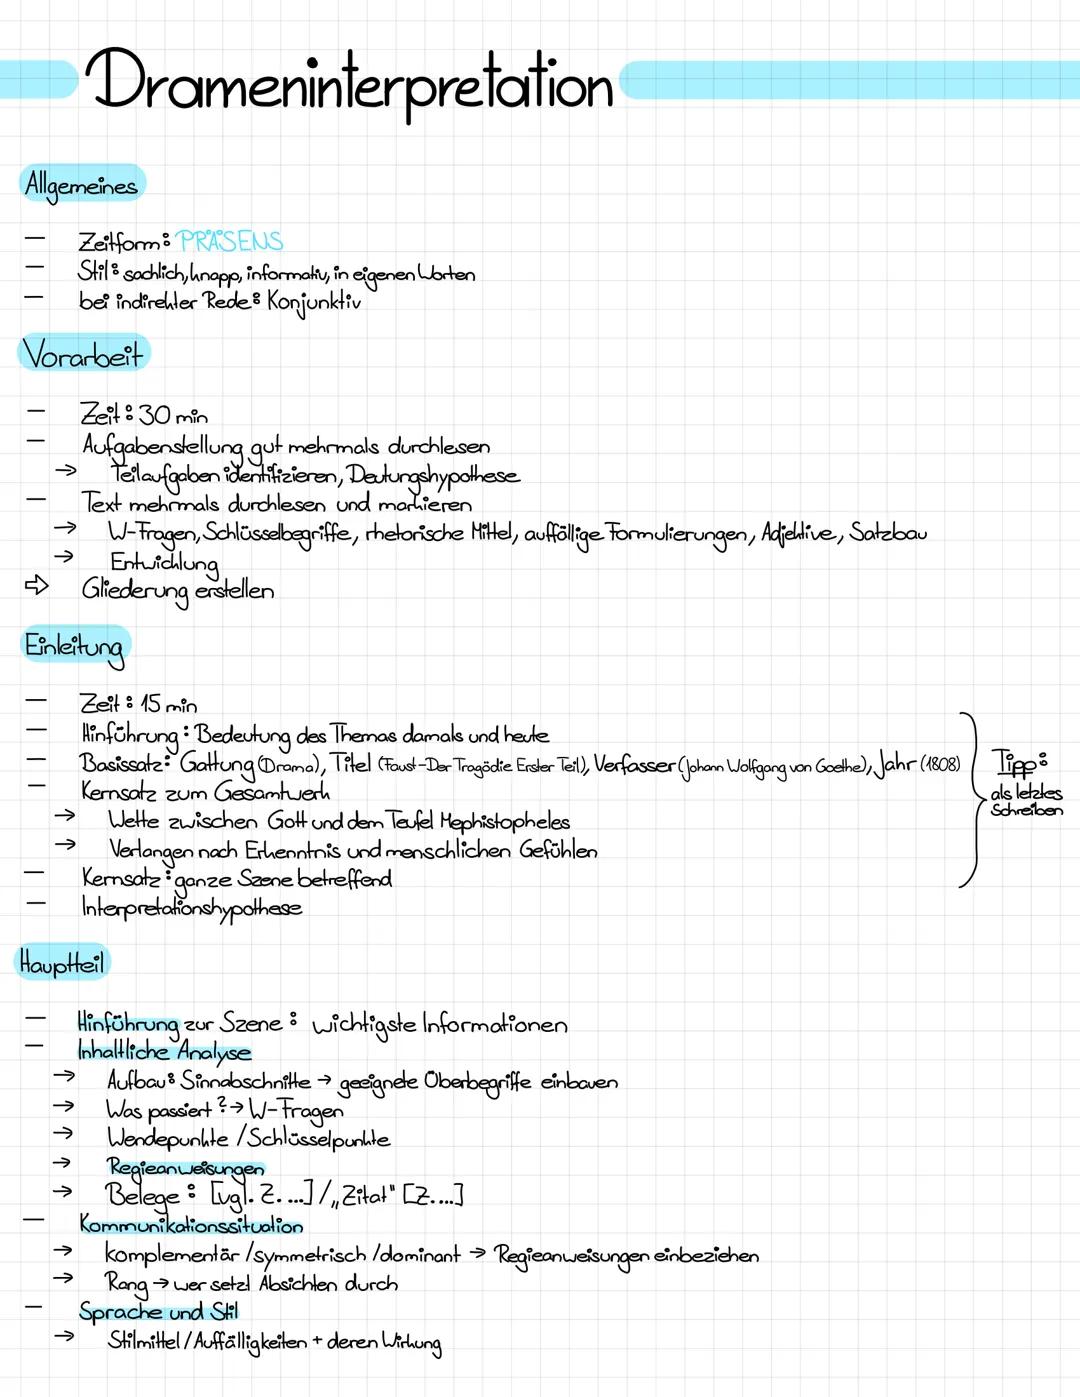 Drameninterpretation
Allgemeines
— Zeitform: PRÄSENS
— Stil: sachlich, knapp, informativ, in eigenen Worten
— bei indirekter Rede: Konjunktiv
Vorarbeit
— Zeit: 30 min
— Aufgabenstellung gut mehrmals durchlesen
→ Teilaufgaben identifizieren, Deutungshypothese
— Text mehrmals durchlesen und markieren
→ W-Fragen, Schlüsselbegriffe, rhetorische Mittel, auffällige Formulierungen, Adjektive, Satzbau
→ Entwicklung
⇨ Gliederung erstellen
Einleitung
— Zeit: 15 min
— Hinführung: Bedeutung des Themas damals und heute
— Basissatz: Gattung (Drama), Titel (Faust-Der Tragödie Erster Teil), Verfasser (Johann Wolfgang von Goethe), Jahr (1808)
— Kernsatz zum Gesamtwerk
→ Wette zwischen Gott und dem Teufel Mephistopheles
→ Verlangen nach Erkenntnis und menschlichen Gefühlen
— Kernsatz: ganze Szene betreffend
— Interpretationshypothese
Tipp:
als letztes
Schreiben
Hauptteil
— Hinführung zur Szene: wichtigste Informationen
— Inhaltliche Analyse
→ Aufbau: Sinnabschnitte → geeignete Überbegriffe einbauen
→ Was passiert? → W-Fragen
→ Wendepunkte / Schlüsselpunkte
→ Regieanweisungen
→ Belege: [vgl. Z. ...] / „Zitat" [Z. ...]
— Kommunikationssituation
→ komplementär / symmetrisch / dominant → Regieanweisungen einbeziehen
→ Rang → wer setzt Absichten durch
— Sprache und Stil
→ Stilmittel / Auffälligkeiten + deren Wirkung